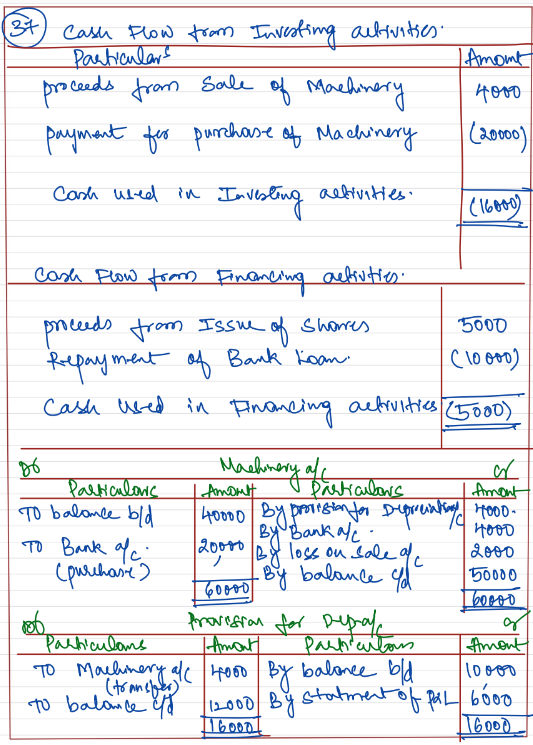 37 Cash Flow from Investing activities.
Particulars Amount
proceeds from Sale of Machinery 4000
payment for purchase of Machinery (20000)
Cash used in Investing activities. (16000)
Cash Flow from Financing activities.
proceeds from Issue of Shares 5000
Repayment of Bank Loan. (10000)
Cash used in Financing activities (5000)
Dr Machinery a/c Cr
Particulars Amount Particulars Amount
To balance b/d 40000 By provision for Depreciation a/c 4000.
By Bank a/c. 4000
To Bank a/c. 20000 By loss on Sale a/c 2000
(purchase) By balance c/d 50000
60000 60000
Dr Provision for Depr a/c Cr
Particulars Amount Particulars Amount
To Machinery a/c 4000 By balance b/d 10000
(transfer)
To balance c/d 12000 By Statment of P&L 6000
16000 16000